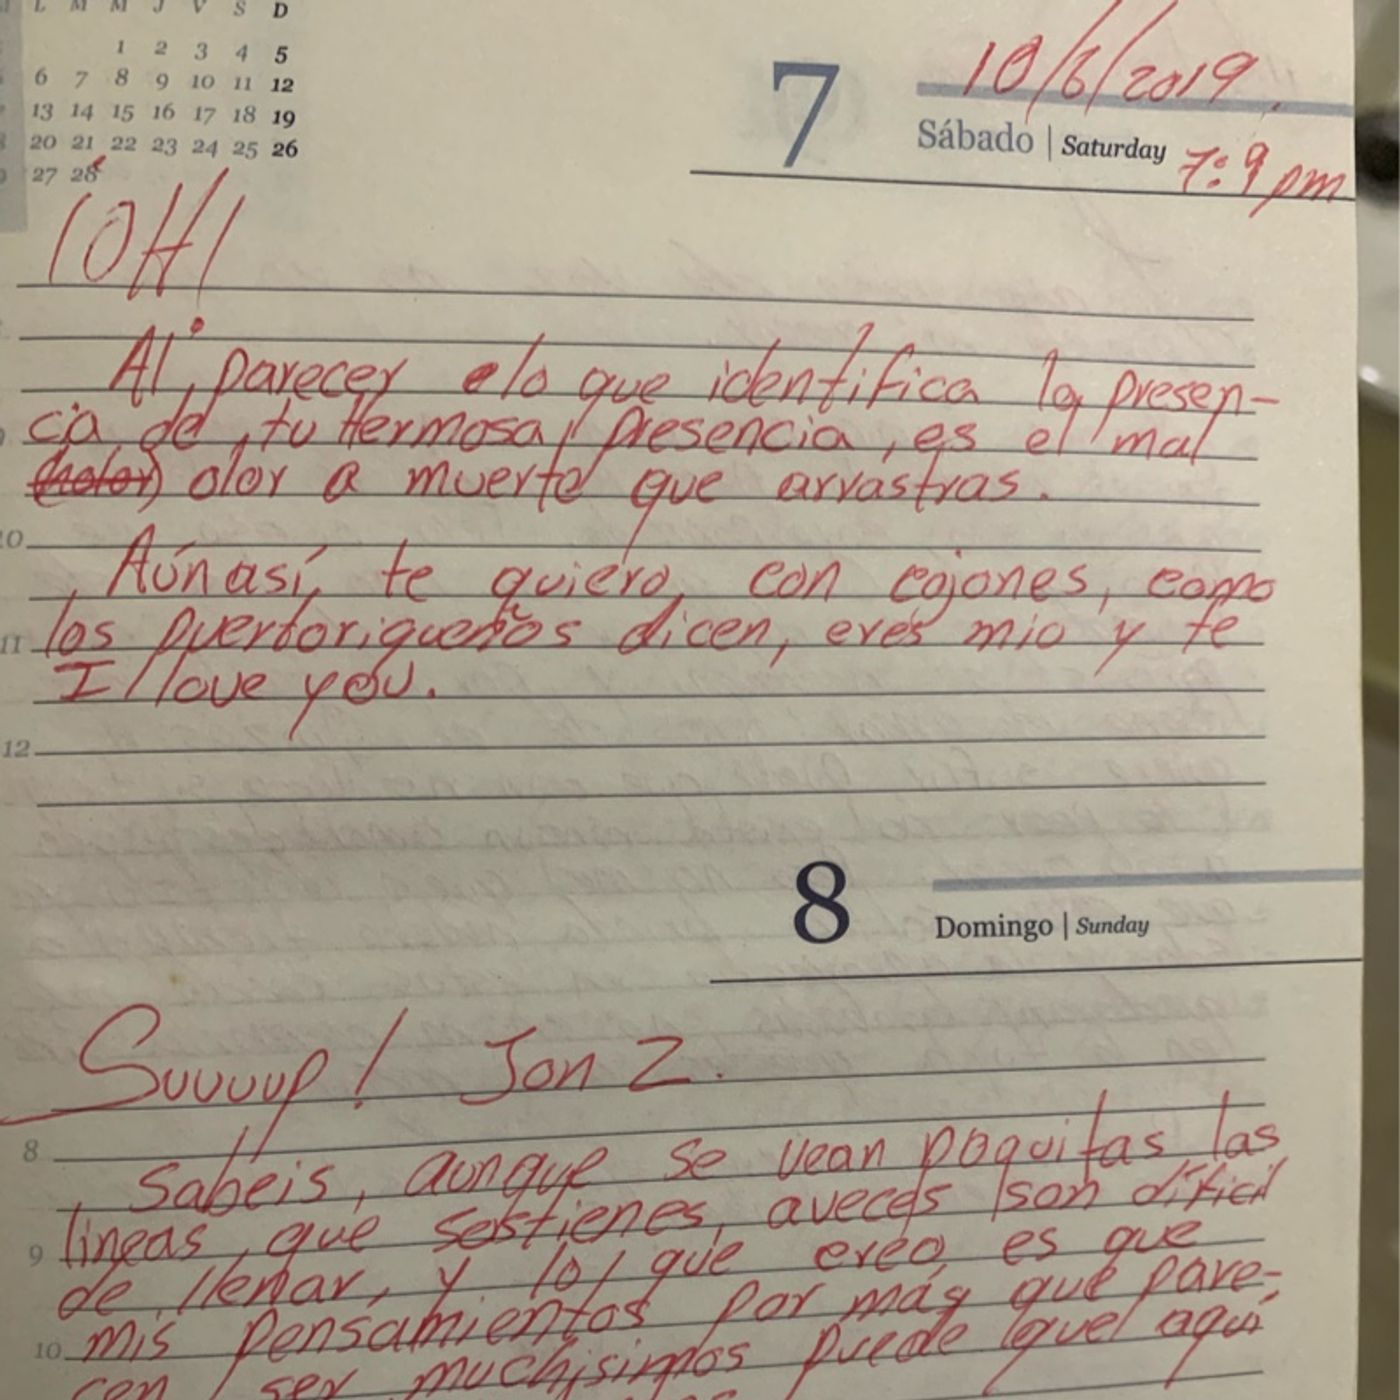 L M M J V S D
1 2 3 4 5
6 7 8 9 10 11 12
13 14 15 16 17 18 19
20 21 22 23 24 25 26
27 28
7
10/6/2019
Sábado | Saturday
7:9 pm
¡OH!
Al parecer lo que identifica la presen-
cia de tu Hermosa Presencia, es el mal
(holor) olor a muerte que arrastras.
10
Aúnasí, te quiero, con cojones, como
11 los puertoriqueños dicen, eres mio y te
I love you.
12
8
Domingo | Sunday
Suuuup! Jon Z.
8
Sabeis, aunque se vean poquitas las
líneas, que sostienes, aveces son díficil
9
de llenar, y lo que creo, es que
mis pensamientos por más que pare-
10
cen ser muchísimos puede que aquí